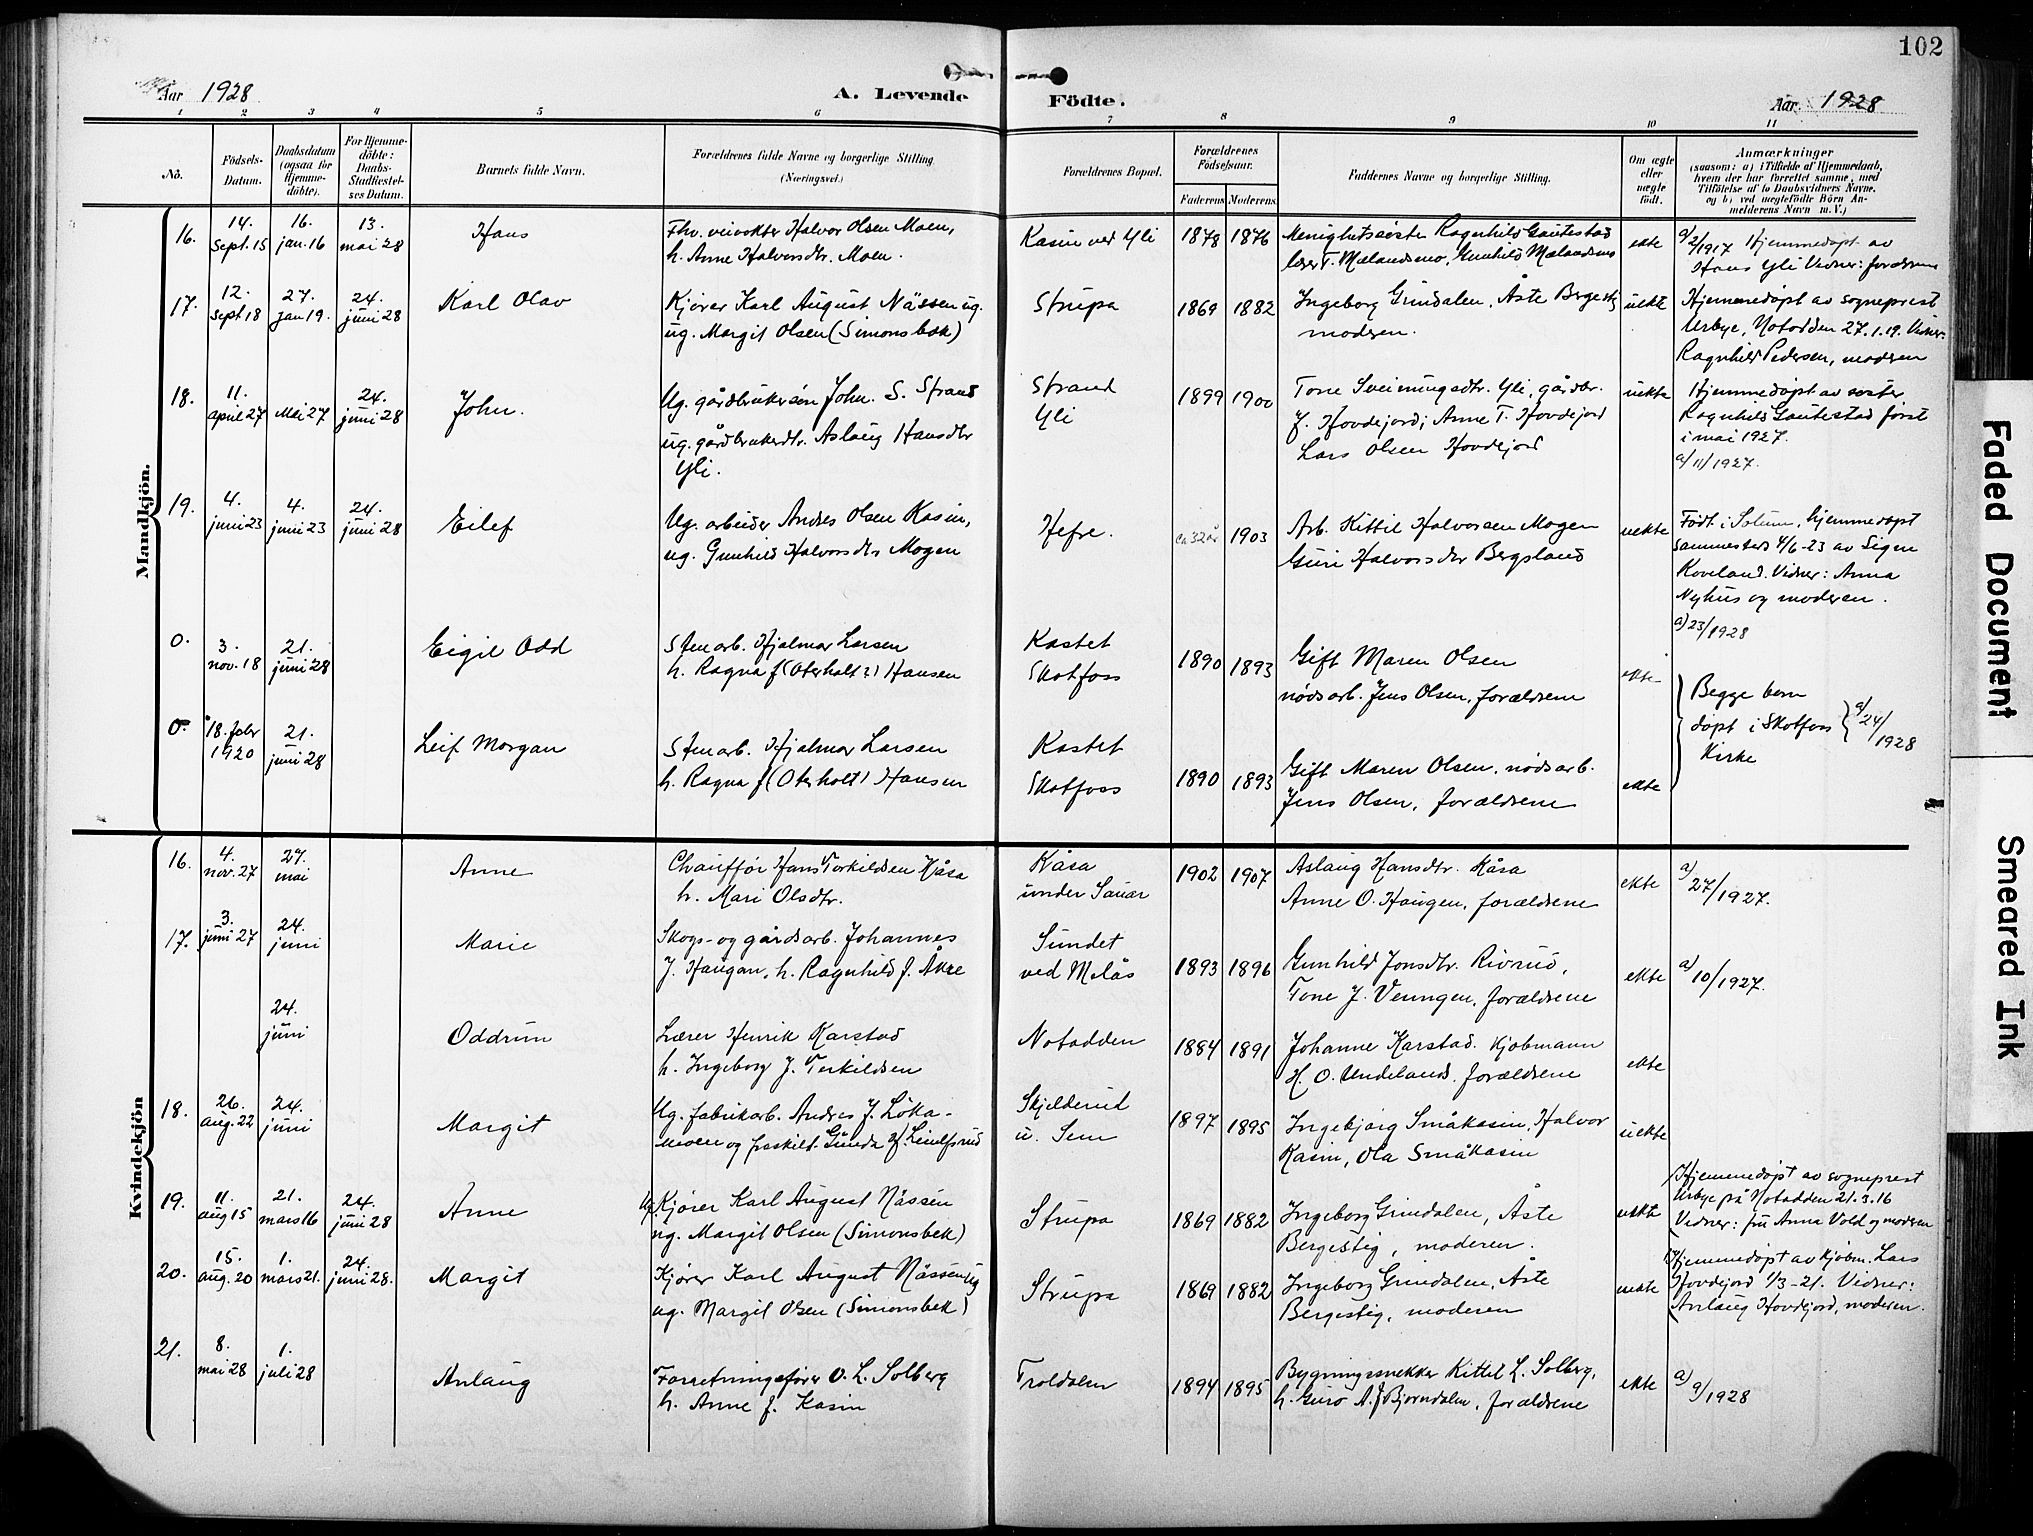 102
Aar 1928
A. Levende Födte.
Aar 1928
1 2 3 4 5 6 7 8 9 10 11
No.
Födsels-
Datum.
Daabsdatum
(ogsaa for
Hjemme-
döbte).
For Hjemme-
döbte:
Daabs-
Stadfæstel-
ses Datum.
Barnets fulde Navn.
Forældrenes fulde Navne og borgerlige Stilling
(Næringsvei.)
Forældrenes Bopæl.
Forældrenes
Födselsaar.
Faderens Moderens
Faddernes Navne og borgerlige Stilling.
Om ægte
eller
uægte
födt.
Anmærkninger
(saasom: a) i Tilfælde af Hjemmedaab,
hvem der har forrettet samme, med
Tilföielse af to Daabsvidners Navne.
og b) ved uægtefödte Börn An-
melderens Navn m. V.)
Mandkjön.
16.
14.
Sept. 15
16.
jan. 16
13.
mai 28
Hans
Fhv. veivokter Halvor Olsen Moen,
h. Anne Halvorsdtr. Moen.
Kasin ved Yli
1878 1876
Menighetssøster Ragnhild Gautestad
lærer T. Mælandsmo, Gunhild Mælandsmo
ekte
a) 2/1917 Hjemmedøpt av
Hans Yli Vidner: forældrene
17.
12.
Sept 18
27.
jan 19.
24.
juni 28
Karl Olav
Kjører Karl August Nässen ug.
ug. Margit Olsen (Simonsbek)
Strupa
1869 1882
Ingeborg Grindalen, Åste Bergestig
moderen.
uekte
Hjemmedøpt av sogneprest
Urbye, Notodden 27.1.19. Vidner:
Ragnhild Pedersen, moderen
18.
11.
april 27
Mai 27
24.
juni 28
John.
Ug. gårdbrukersøn John. S. Strand
ug. gårdbrukerdtr. Aslaug Hansdtr
Yli.
Strand
Yli
1899 1900
Tone Sveinungsdtr. Yli, gårdbr.
J. Hovdejord; Anne T. Hovdejord
Lars Olsen Hovdejord
uekte
Hjemmedøpt av søster
Ragnhild Gautestad først
i mai 1927.
a) 11/1927.
19.
4.
juni 23
4.
juni 23
24.
juni 28
Eilef
Ug. arbeider Andres Olsen Kasin,
ug. Gunhild Halvorsdtr Mogen
Hefre.
ca 32 år 1903
Arb. Kittil Halvorsen Mogen
Guri Halvorsdtr Bergsland
uekte
Født i Solum, hjemmedøpt
sammesteds 4/6-23 av Signe
Koveland. Vidner: Anna
Nyhus og moderen.
a) 23/1928
0.
3.
nov. 18
21.
juni 28
Eigil Odd
Stenarb. Hjalmar Larsen
h. Ragna f (Oterholt?) Hansen
Kastet
Skotfoss
1890 1893
Gift Maren Olsen
nødsarb. Jens Olsen, forældrene
ekte
Begge børn
døpt i Skotfoss
Kirke
a) 24/1928
0.
18. febr
1920
21.
juni 28
Leif Morgan
Stenarb. Hjalmar Larsen
h. Ragna f (Oterholt) Hansen
Kastet
Skotfoss
1890 1893
Gift Maren Olsen, nødsarb.
Jens Olsen, forældrene
ekte
Kvindekjön
16.
4.
nov. 27
27.
mai
Anne
Chauffør Hans Torkildsen Kåsa
h. Mari Olsdtr.
Kåsa
under Sauar
1902 1907
Aslaug Hansdtr. Kåsa
Anne O. Haugen, forældrene
ekte
a) 27/1927.
17.
3.
juni 27
24.
juni
Marie
Skogs- og gårdsarb. Johannes
J. Haugan, h. Ragnhild f. Åkre
Sundet
ved Melås
1893 1896
Gunhild Jonsdtr. Rivrud,
Tone J. Venngen, forældrene
ekte
a) 10/1927.
24.
juni
Oddrun
Lærer Henrik Karstad
h. Ingeborg J. Terkildsen
Notodden
1884 1891
Johanne Karstad. Kjøbmann
H. O. Undelands, forældrene
ekte
18.
26.
aug. 22
24.
juni
Margit
Ug. fabrikarb. Andres J. Löka-
moen og fraskilt Gunda H. Leulfsrud
Skjelderud
u. Sem
1897 1895
Ingebjørg Småkasin, Halvor
Kasin, Ola Småkasin
uekte
19.
11.
aug 15
21.
mars 16
24.
juni 28
Anne
Ug. Kjører Karl August Nässen
ug. Margit Olsen (Simonsbek)
Strupa
1869 1882
Ingeborg Grindalen, Åste
Bergestig, moderen.
uekte
Hjemmedøpt av sogneprest
Urbye på Notodden 21.3.16
Vidner: fru Anna Vold og moderen
20.
15.
aug. 20
1.
mars 21.
24.
juni 28.
Margit
Kjører Karl August Nässen ug
ug. Margit Olsen (Simonsbek)
Strupa
1869 1882
Ingeborg Grindalen, Åste
Bergestig, moderen
uekte
Hjemmedøpt av kjøbm. Lars
Hovdejord 1/3-21. Vidner:
Anlaug Hovdejord, moderen.
21.
8.
mai 28
1.
juli 28
Anlaug
Forretningsfører O. L. Solberg
h. Anne f. Kasin
Troldalen
1894 1895
Bygningssnekker Kittel L. Solberg,
h. Guro A. f Bjørndalen, forældrene
ekte
a) 9/1928
Faded Document
Smeared Ink